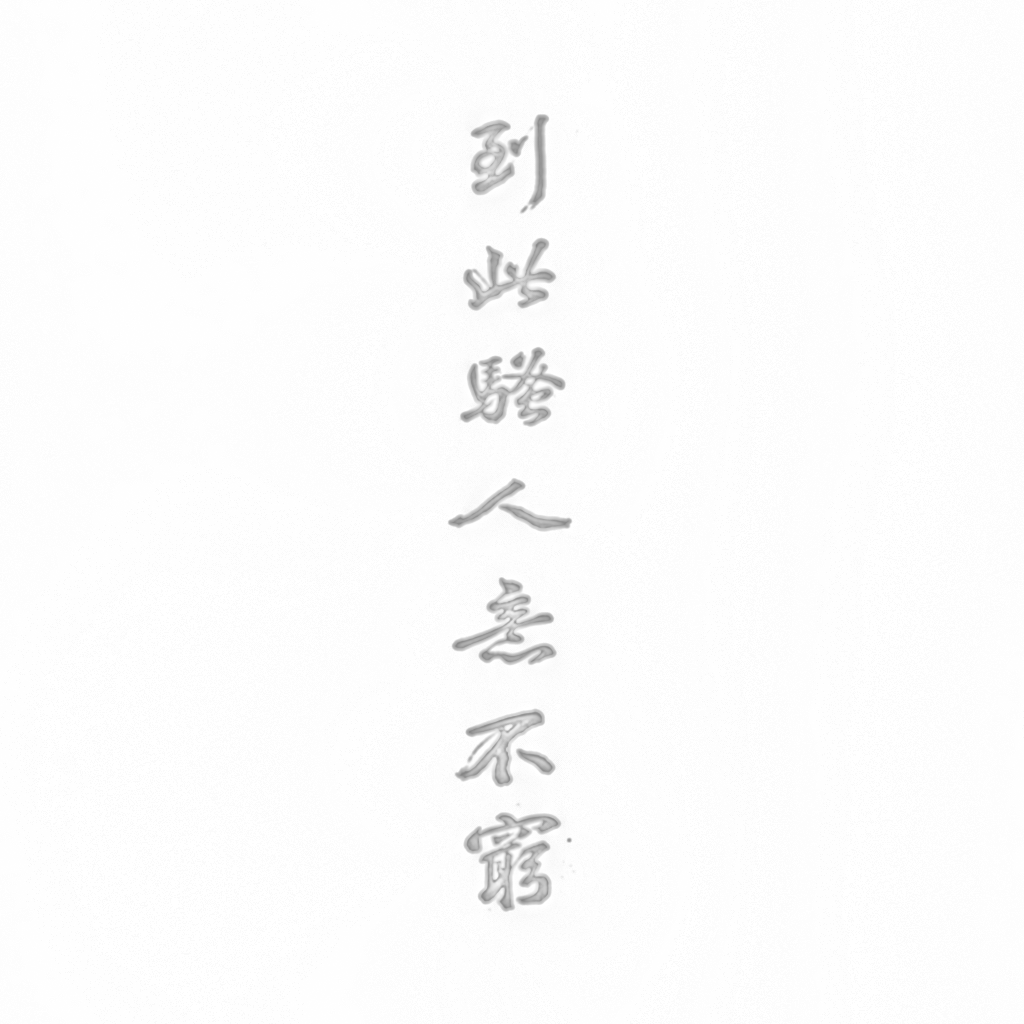 到此騷人意不窮